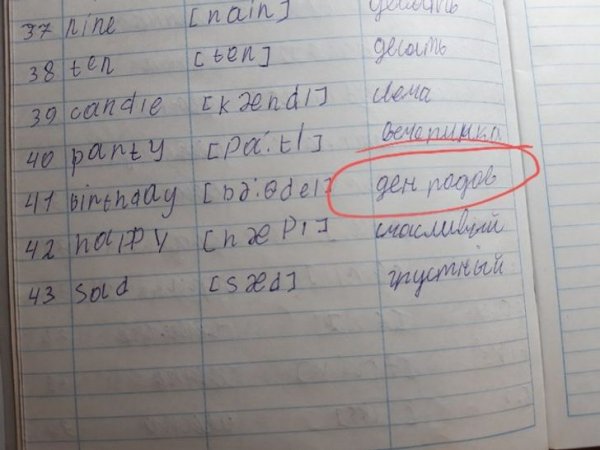 37 nine [nain] девять
38 ten [ten] десять
39 candle [kændl] свеча
40 party [pa:tI] вечеринка
41 Birthday [bə:θdeI] ден радов
42 happy [hæpI] счасливый
43 sad [sæd] грустный